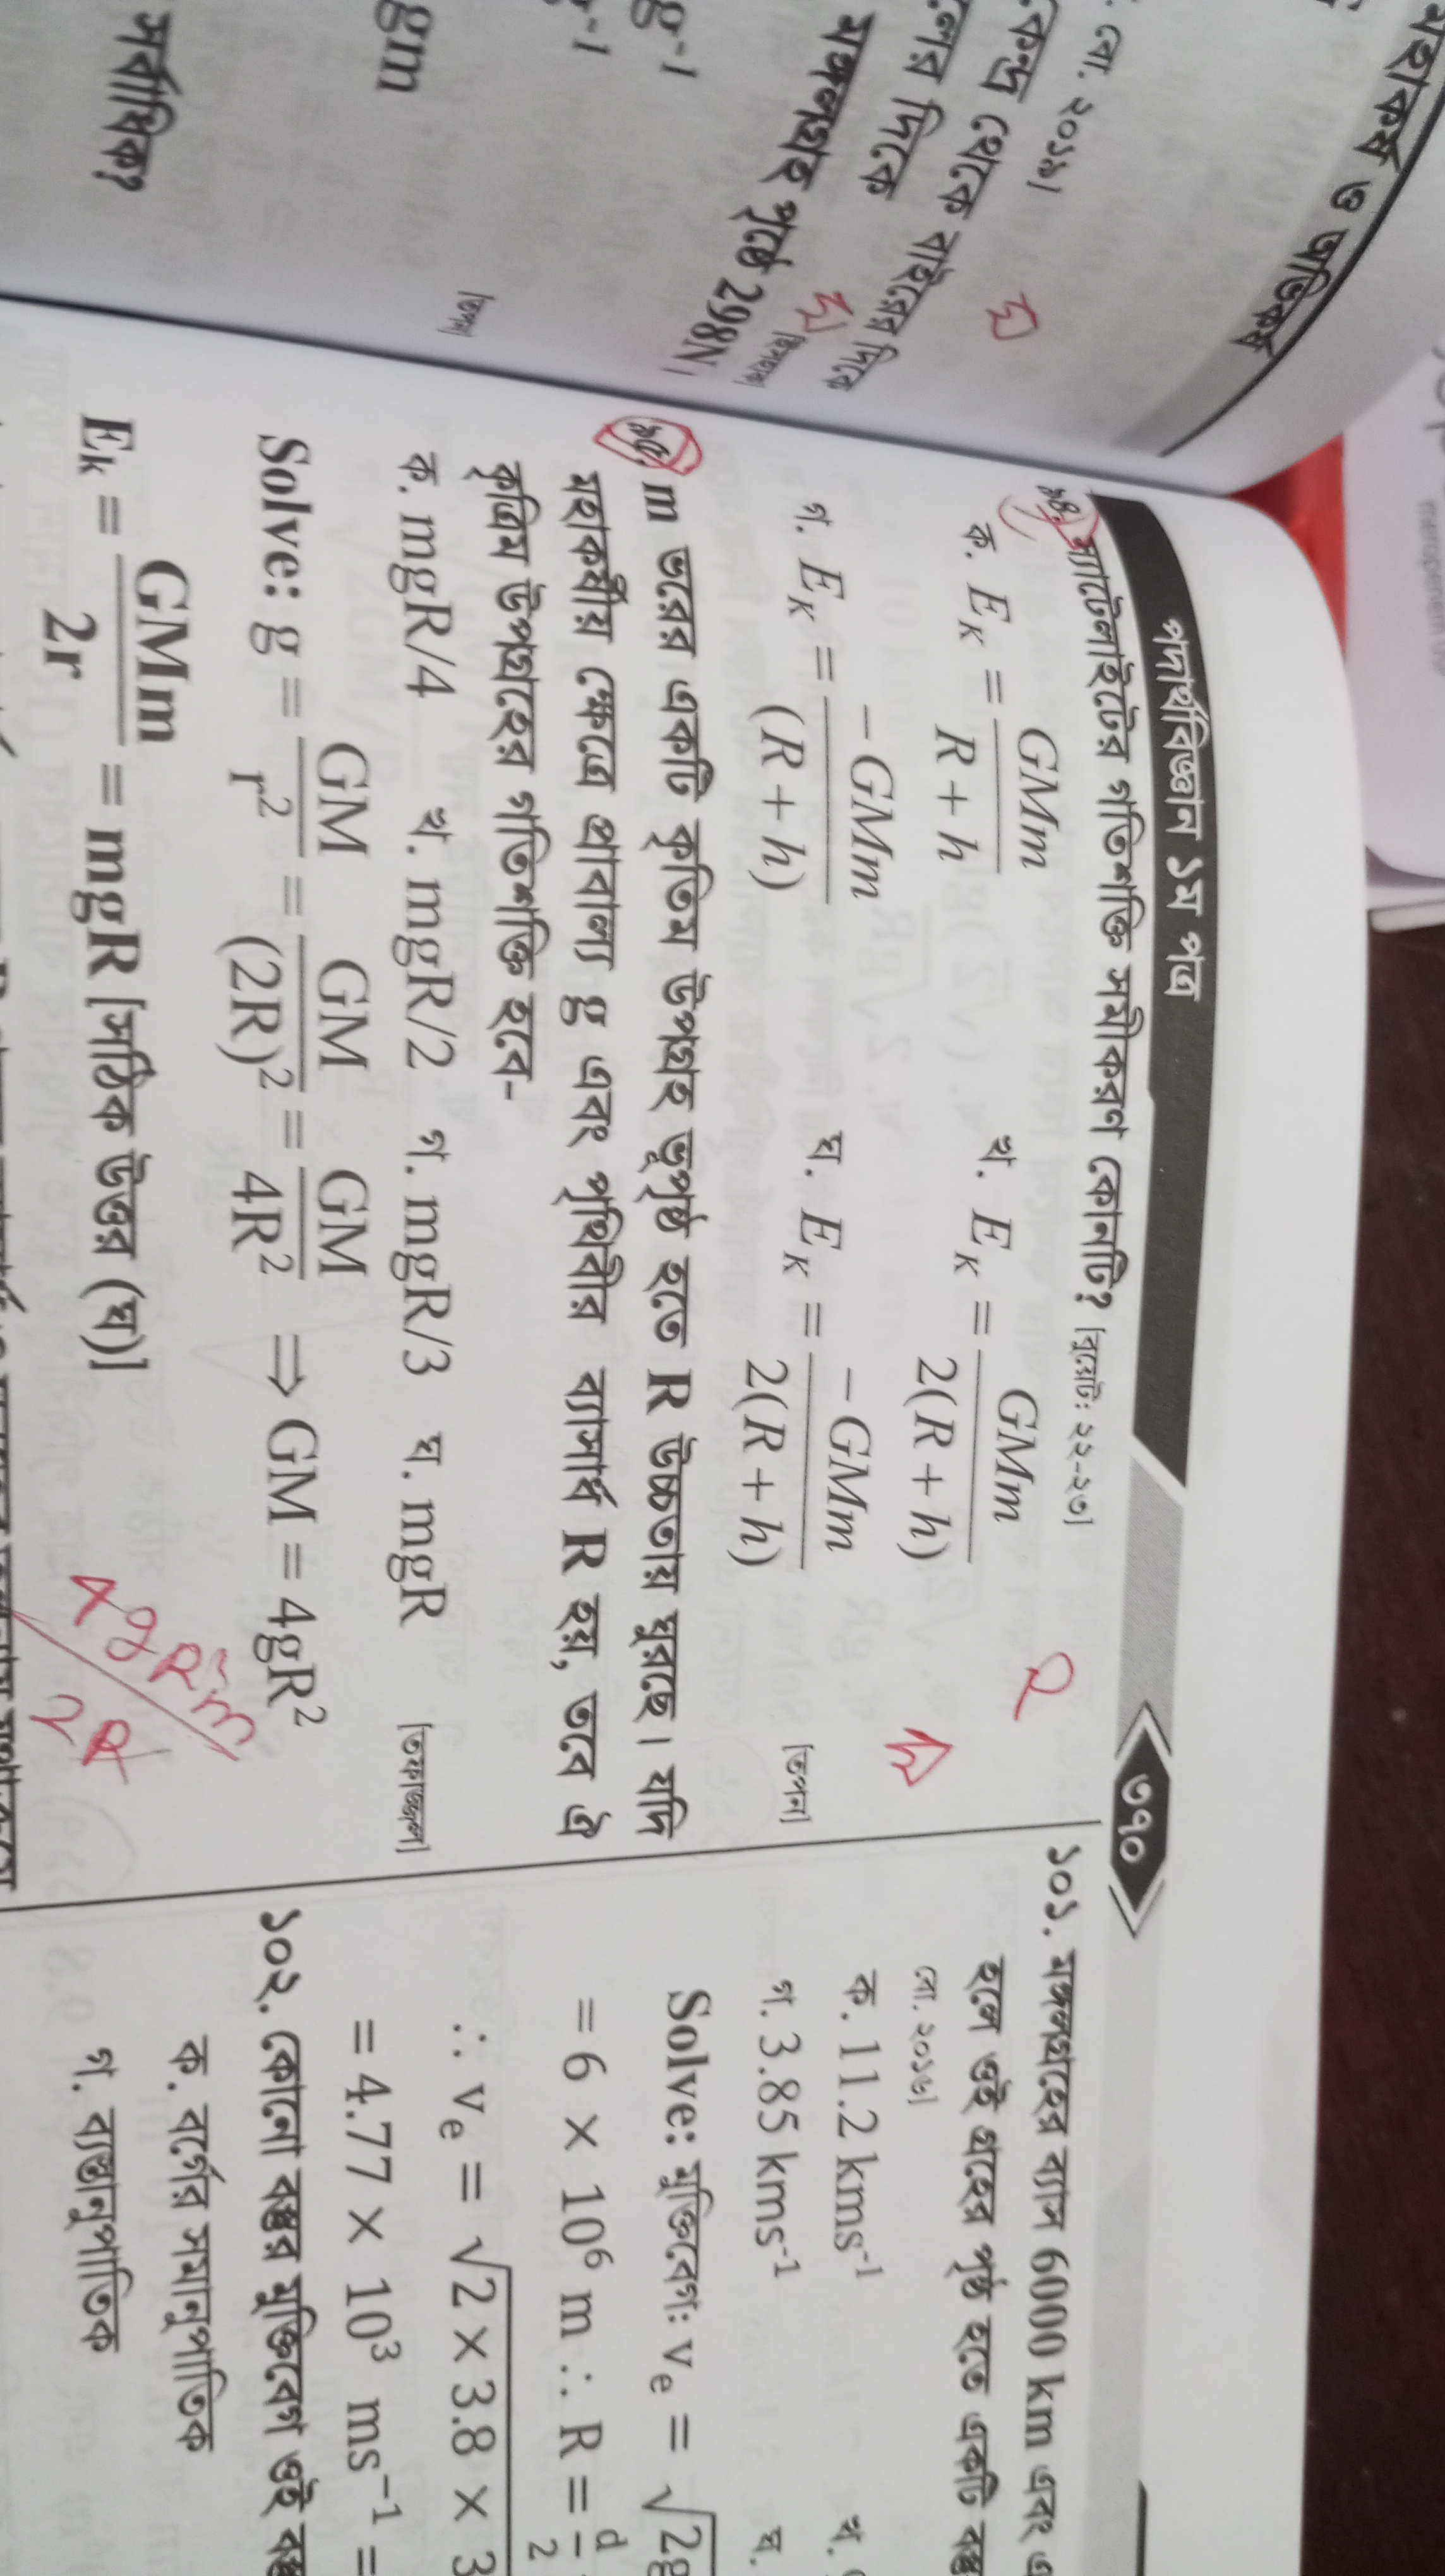 মহাকর্ষ ও অভিকর্ষ
বো. ২০১৯]
কেন্দ্র থেকে বাইরের দিকে
লের দিকে
মঙ্গলগ্রহ পৃষ্ঠে 298N।
g⁻¹
gm
সর্বাধিক?
পদার্থবিজ্ঞান ১ম পত্র
৩৭০
৯৪. স্যাটেলাইটের গতিশক্তি সমীকরণ কোনটি? [বুয়েট: ২২-২৩]
ক. E_K = GMm/(R + h) খ. E_K = GMm/2(R + h)
গ. E_K = −GMm/(R + h) ঘ. E_K = −GMm/2(R + h)
৯৫. m ভরের একটি কৃত্রিম উপগ্রহ ভূপৃষ্ঠ হতে R উচ্চতায় ঘুরছে। যদি
মহাকর্ষীয় ক্ষেত্রে প্রাবল্য g এবং পৃথিবীর ব্যাসার্ধ R হয়, তবে ঐ
কৃত্রিম উপগ্রহের গতিশক্তি হবে-
ক. mgR/4 খ. mgR/2 গ. mgR/3 ঘ. mgR
Solve: g = GM/r² = GM/(2R)² = GM/4R² ⇒ GM = 4gR²
E_k = GMm/2r = mgR [সঠিক উত্তর (ঘ)]
১০১. মঙ্গলগ্রহের ব্যাস 6000 km এবং
হলে ওই গ্রহের পৃষ্ঠ হতে একটি বস্তু
বো. ২০১৬]
ক. 11.2 kms⁻¹ খ.
গ. 3.85 kms⁻¹ ঘ.
Solve: মুক্তিবেগ: v_e = √2g
= 6 × 10⁶ m ∴ R = d/2
∴ v_e = √2 × 3.8 × 3
= 4.77 × 10³ ms⁻¹ =
১০২. কোনো বস্তুর মুক্তিবেগ ওই বস্তু
ক. বর্গের সমানুপাতিক
গ. ব্যস্তানুপাতিক